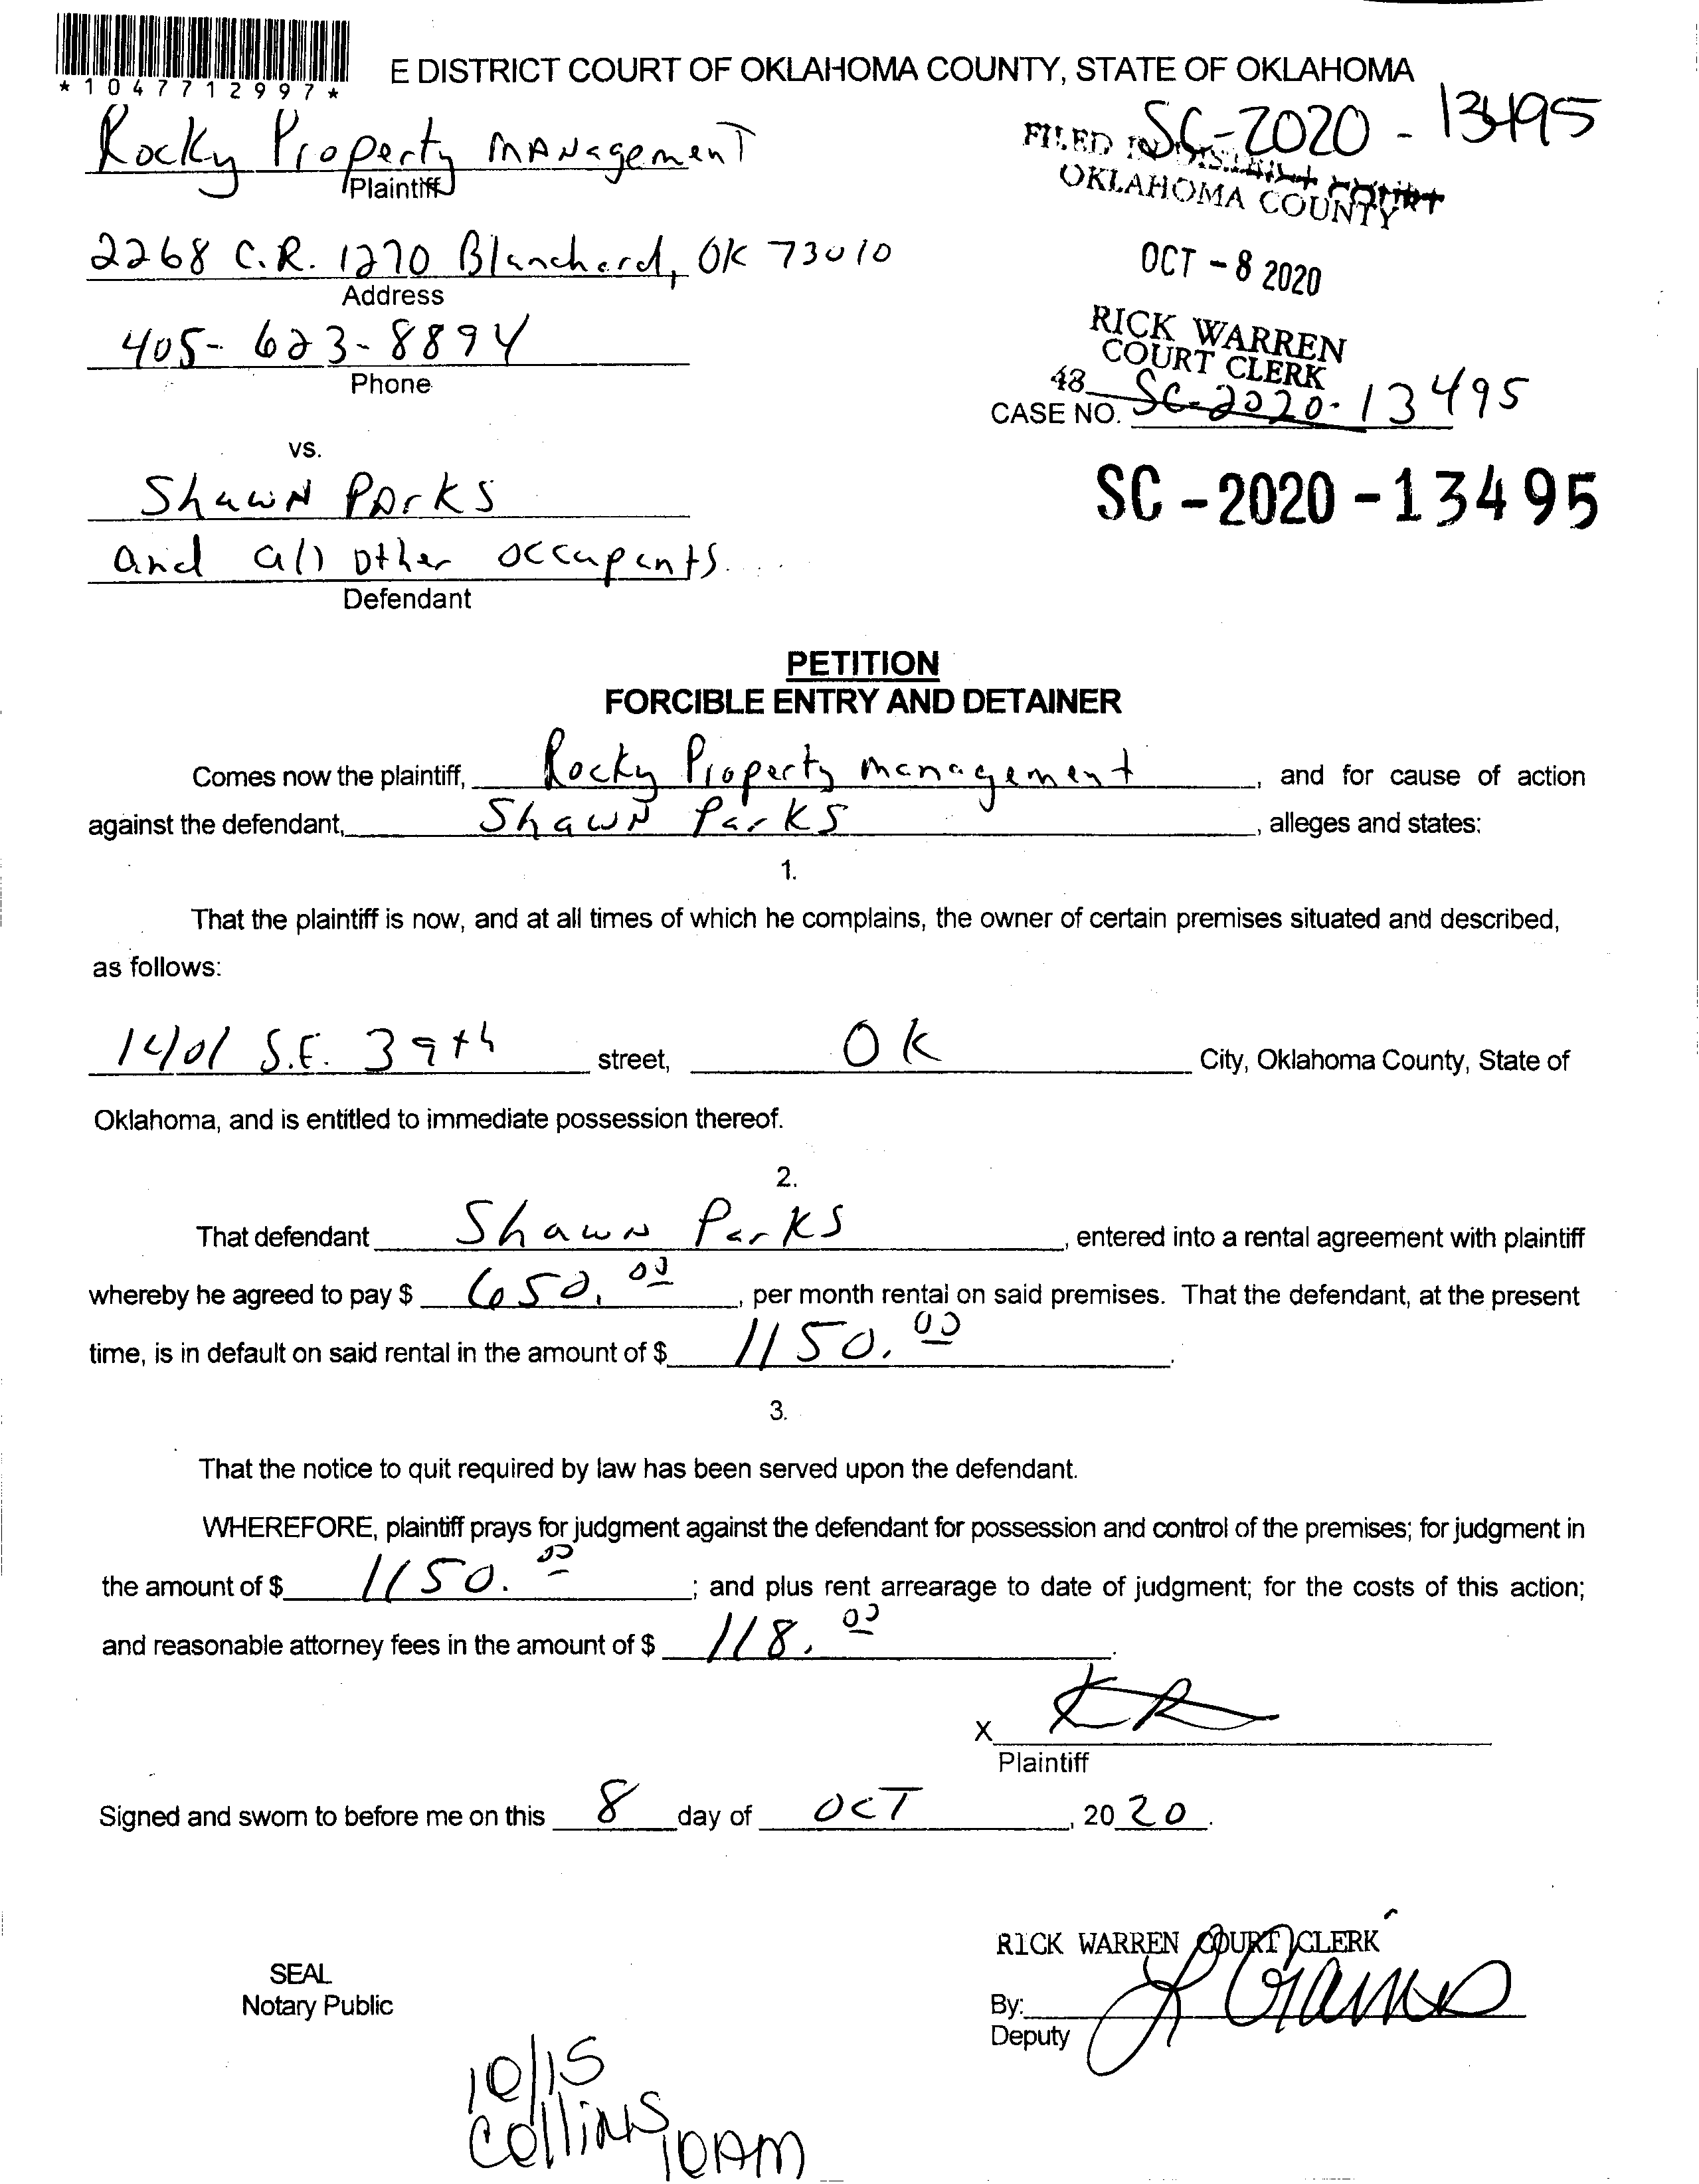 *1047712997*
E DISTRICT COURT OF OKLAHOMA COUNTY, STATE OF OKLAHOMA
SC-2020-13495
Rocky Property Management
Plaintiff
FILED IN DISTRICT COURT
OKLAHOMA COUNTY
2268 C.R. 1270 Blanchard, OK 73010
Address
OCT - 8 2020
405-623-8894
Phone
RICK WARREN
COURT CLERK
48
CASE NO. SC-2020-13495
vs.
Shawn Parks
SC-2020-13495
and all other occupants
Defendant
PETITION
FORCIBLE ENTRY AND DETAINER
Comes now the plaintiff, Rocky Property management, and for cause of action
against the defendant, Shawn Parks, alleges and states:
1.
That the plaintiff is now, and at all times of which he complains, the owner of certain premises situated and described,
as follows:
1401 S.E. 39th street, OK City, Oklahoma County, State of
Oklahoma, and is entitled to immediate possession thereof.
2.
That defendant Shawn Parks, entered into a rental agreement with plaintiff
whereby he agreed to pay $ 650.00, per month rental on said premises. That the defendant, at the present
time, is in default on said rental in the amount of $ 1150.00.
3.
That the notice to quit required by law has been served upon the defendant.
WHEREFORE, plaintiff prays for judgment against the defendant for possession and control of the premises; for judgment in
the amount of $ 1150.00; and plus rent arrearage to date of judgment; for the costs of this action;
and reasonable attorney fees in the amount of $ 118.00.
X KR
Plaintiff
Signed and sworn to before me on this 8 day of OCT, 2020.
RICK WARREN COURT CLERK
SEAL
Notary Public
By:
Deputy
10/15
Collins
10AM